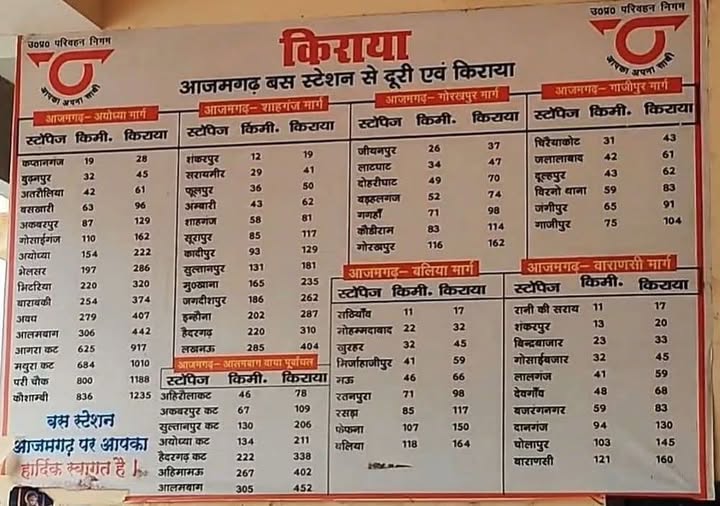 उ०प्र० परिवहन निगम
आपका अपना साथी
किराया
आजमगढ़ बस स्टेशन से दूरी एवं किराया
उ०प्र० परिवहन निगम
आपका अपना साथी
आजमगढ़– अयोध्या मार्ग
स्टॉपेज किमी. किराया
कप्तानगंज 19 28
बुढ़नपुर 32 45
अतरौलिया 42 61
बसखारी 63 96
अकबरपुर 87 129
गोसाईगंज 110 162
अयोध्या 154 222
भेलसर 197 286
भिटरिया 220 320
बाराबंकी 254 374
अवध 279 407
आलमबाग 306 442
आगरा कट 625 917
मथुरा कट 684 1010
परी चौक 800 1188
कौशाम्बी 836 1235
बस स्टेशन
आजमगढ़ पर आपका
हार्दिक स्वागत है।
आजमगढ़– शाहगंज मार्ग
स्टॉपेज किमी. किराया
शंकरपुर 12 19
सरायमीर 29 41
फूलपुर 36 50
अम्बारी 43 62
शाहगंज 58 81
सूरापुर 85 117
कादीपुर 93 129
सुल्तानपुर 131 181
मुसाखाना 165 235
जगदीशपुर 186 262
इन्हौना 202 287
हैदरगढ़ 220 310
लखनऊ 285 404
आजमगढ़–आलमबाग वाया पूर्वांचल
स्टॉपेज किमी. किराया
अहिरौलाकट 46 78
अकबरपुर कट 67 109
सुल्तानपुर कट 130 206
अयोध्या कट 134 211
हैदरगढ़ कट 222 338
अहिमामऊ 267 402
आलमबाग 305 452
आजमगढ़– गोरखपुर मार्ग
स्टॉपेज किमी. किराया
जीयनपुर 26 37
लाटघाट 34 47
दोहरीघाट 49 70
बड़हलगंज 52 74
गगहाँ 71 98
कौडीराम 83 114
गोरखपुर 116 162
आजमगढ़– गाजीपुर मार्ग
स्टॉपेज किमी. किराया
चिरैयाकोट 31 43
जलालाबाद 42 61
दूल्हपुर 43 62
बिरनो थाना 59 83
जंगीपुर 65 91
गाजीपुर 75 104
आजमगढ़– बलिया मार्ग
स्टॉपेज किमी. किराया
सठियाँव 11 17
मोहम्मदाबाद 22 32
खुरहट 32 45
मिर्जाहाजीपुर 41 59
मऊ 46 66
रतनपुरा 71 98
रसड़ा 85 117
फेफना 107 150
बलिया 118 164
आजमगढ़– वाराणसी मार्ग
स्टॉपेज किमी. किराया
रानी की सराय 11 17
शंकरपुर 13 20
बिन्द्राबाजार 23 33
गोसाईबाजार 32 45
लालगंज 41 59
देवगाँव 48 68
बजरंगनगर 59 83
दानगंज 94 130
चोलापुर 103 145
वाराणसी 121 160